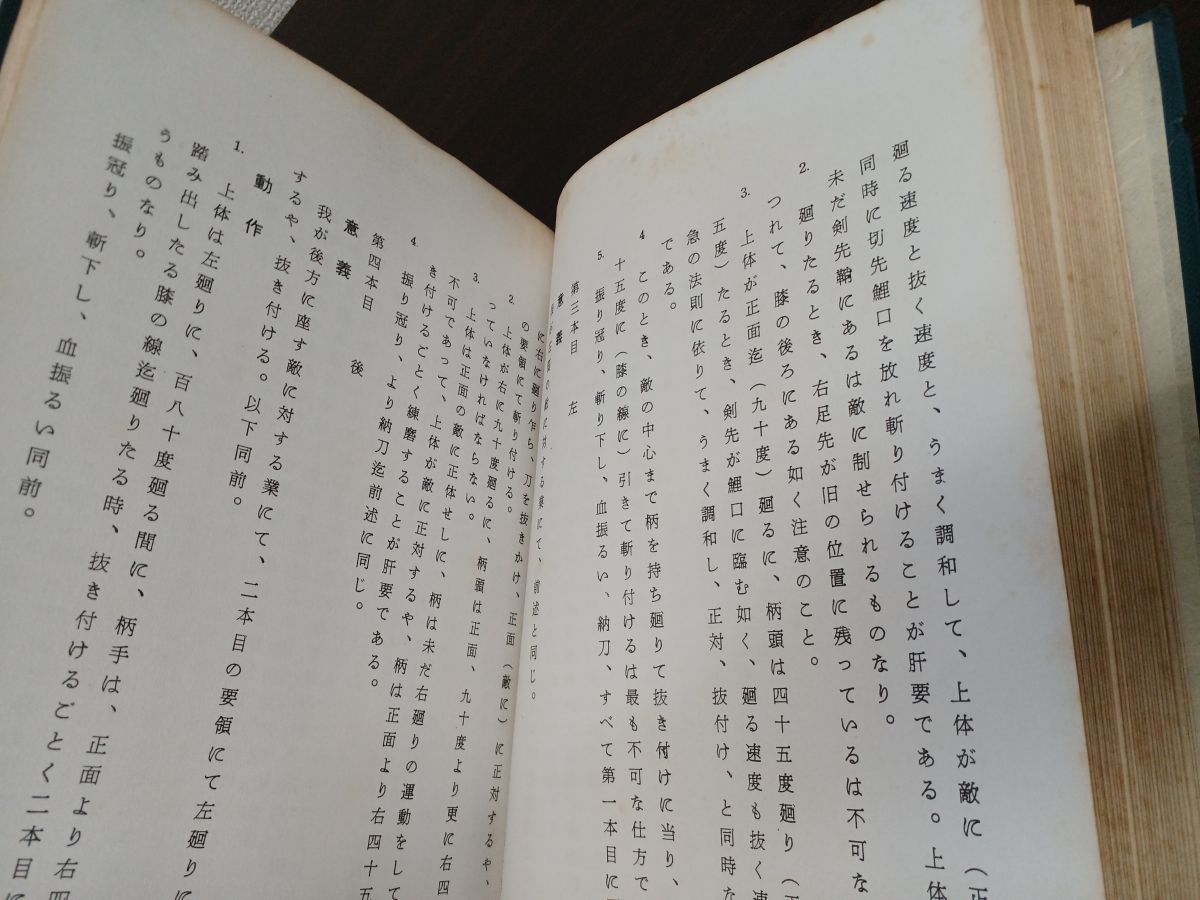 廻る速度と抜く速度と、うまく調和して、上体が敵に（正
同時に切先鯉口を放れ斬り付けることが肝要である。上体
未だ剣先鞘にあるは敵に制せられるものなり。
2. 廻りたるとき、右足先が旧の位置に残っているは不可な
つれて、膝の後ろにある如く注意のこと。
3. 上体が正面迄（九十度）廻るに、柄頭は四十五度廻り（正
五度）たるとき、剣先が鯉口に臨む如く、廻る速度も抜く速
急の法則に依りて、うまく調和し、正対、抜付け、と同時な
である。
4 このとき、敵の中心まで柄を持ち廻りて抜き付けに当り、
十五度に（膝の線に）引きて斬り付けるは最も不可な仕方で
5. 振り冠り、斬り下し、血振るい、納刀、すべて第一本目に同
第三本目 左
意義
に対する業にて、前述と同じ。
に右に廻り乍ら、刀を抜きかけ、正面（敵に）に正対するや、
の要領にて斬り付ける。
2. 上体が右に九十度廻るに、柄頭は正面、九十度より更に右四
っていなければならない。
3. 上体は正面の敵に正体せしに、柄は未だ右廻りの運動をして
不可であって、上体が敵に正対するや、柄は正面より右四十五
き付けるごとく練磨することが肝要である。
4. 振り冠り、より納刀迄前述に同じ。
第四本目 後
意義
我が後方に座す敵に対する業にて、二本目の要領にて左廻りに
するや、抜き付ける。以下同前。
動作
1. 上体は左廻りに、百八十度廻る間に、柄手は、正面より右四
踏み出したる膝の線迄廻りたる時、抜き付けるごとく二本目に
うものなり。
振冠り、斬下し、血振るい同前。